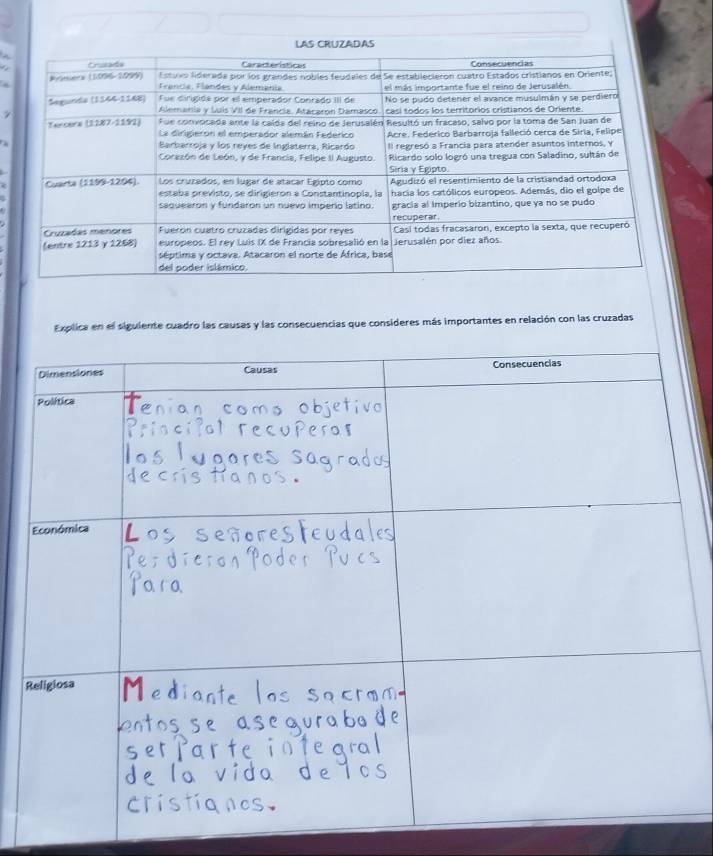 LAS CRUZADAS
Cruzada Características Consecuencias
Primera (1096-1099) Estuvo liderada por los grandes nobles feudales de Se establecieron cuatro Estados cristianos en Oriente;
Francia, Flandes y Alemania. el más importante fue el reino de Jerusalén.
Segunda (1144-1148) Fue dirigida por el emperador Conrado III de No se pudo detener el avance musulmán y se perdiero
Alemania y Luis VII de Francia. Atacaron Damasco. casi todos los territorios cristianos de Oriente.
Tercera (1187-1191) Fue convocada ante la caída del reino de Jerusalén Resultó un fracaso, salvo por la toma de San Juan de
La dirigieron el emperador alemán Federico Acre. Federico Barbarroja falleció cerca de Siria, Felipe
Barbarroja y los reyes de Inglaterra, Ricardo II regresó a Francia para atender asuntos internos, y
Corazón de León, y de Francia, Felipe II Augusto. Ricardo solo logró una tregua con Saladino, sultán de
Siria y Egipto.
Cuarta (1199-1204). Los cruzados, en lugar de atacar Egipto como Agudizó el resentimiento de la cristiandad ortodoxa
estaba previsto, se dirigieron a Constantinopla, la hacia los católicos europeos. Además, dio el golpe de
saquearon y fundaron un nuevo imperio latino. gracia al Imperio bizantino, que ya no se pudo
recuperar.
Cruzadas menores Fueron cuatro cruzadas dirigidas por reyes Casi todas fracasaron, excepto la sexta, que recuperó
(entre 1213 y 1268) europeos. El rey Luis IX de Francia sobresalió en la Jerusalén por diez años.
séptima y octava. Atacaron el norte de África, base
del poder islámico.
Explica en el siguiente cuadro las causas y las consecuencias que consideres más importantes en relación con las cruzadas
Dimensiones Causas Consecuencias
Política Tenian como objetivo
Principal recuperar
los lugares sagrados
de cristianos.
Económica Los señores feudales
Perdieron Poder Pues
Para
Religiosa Mediante los sacram-
entos se asegurabade
ser Parte integral
de la vida de los
cristianos.